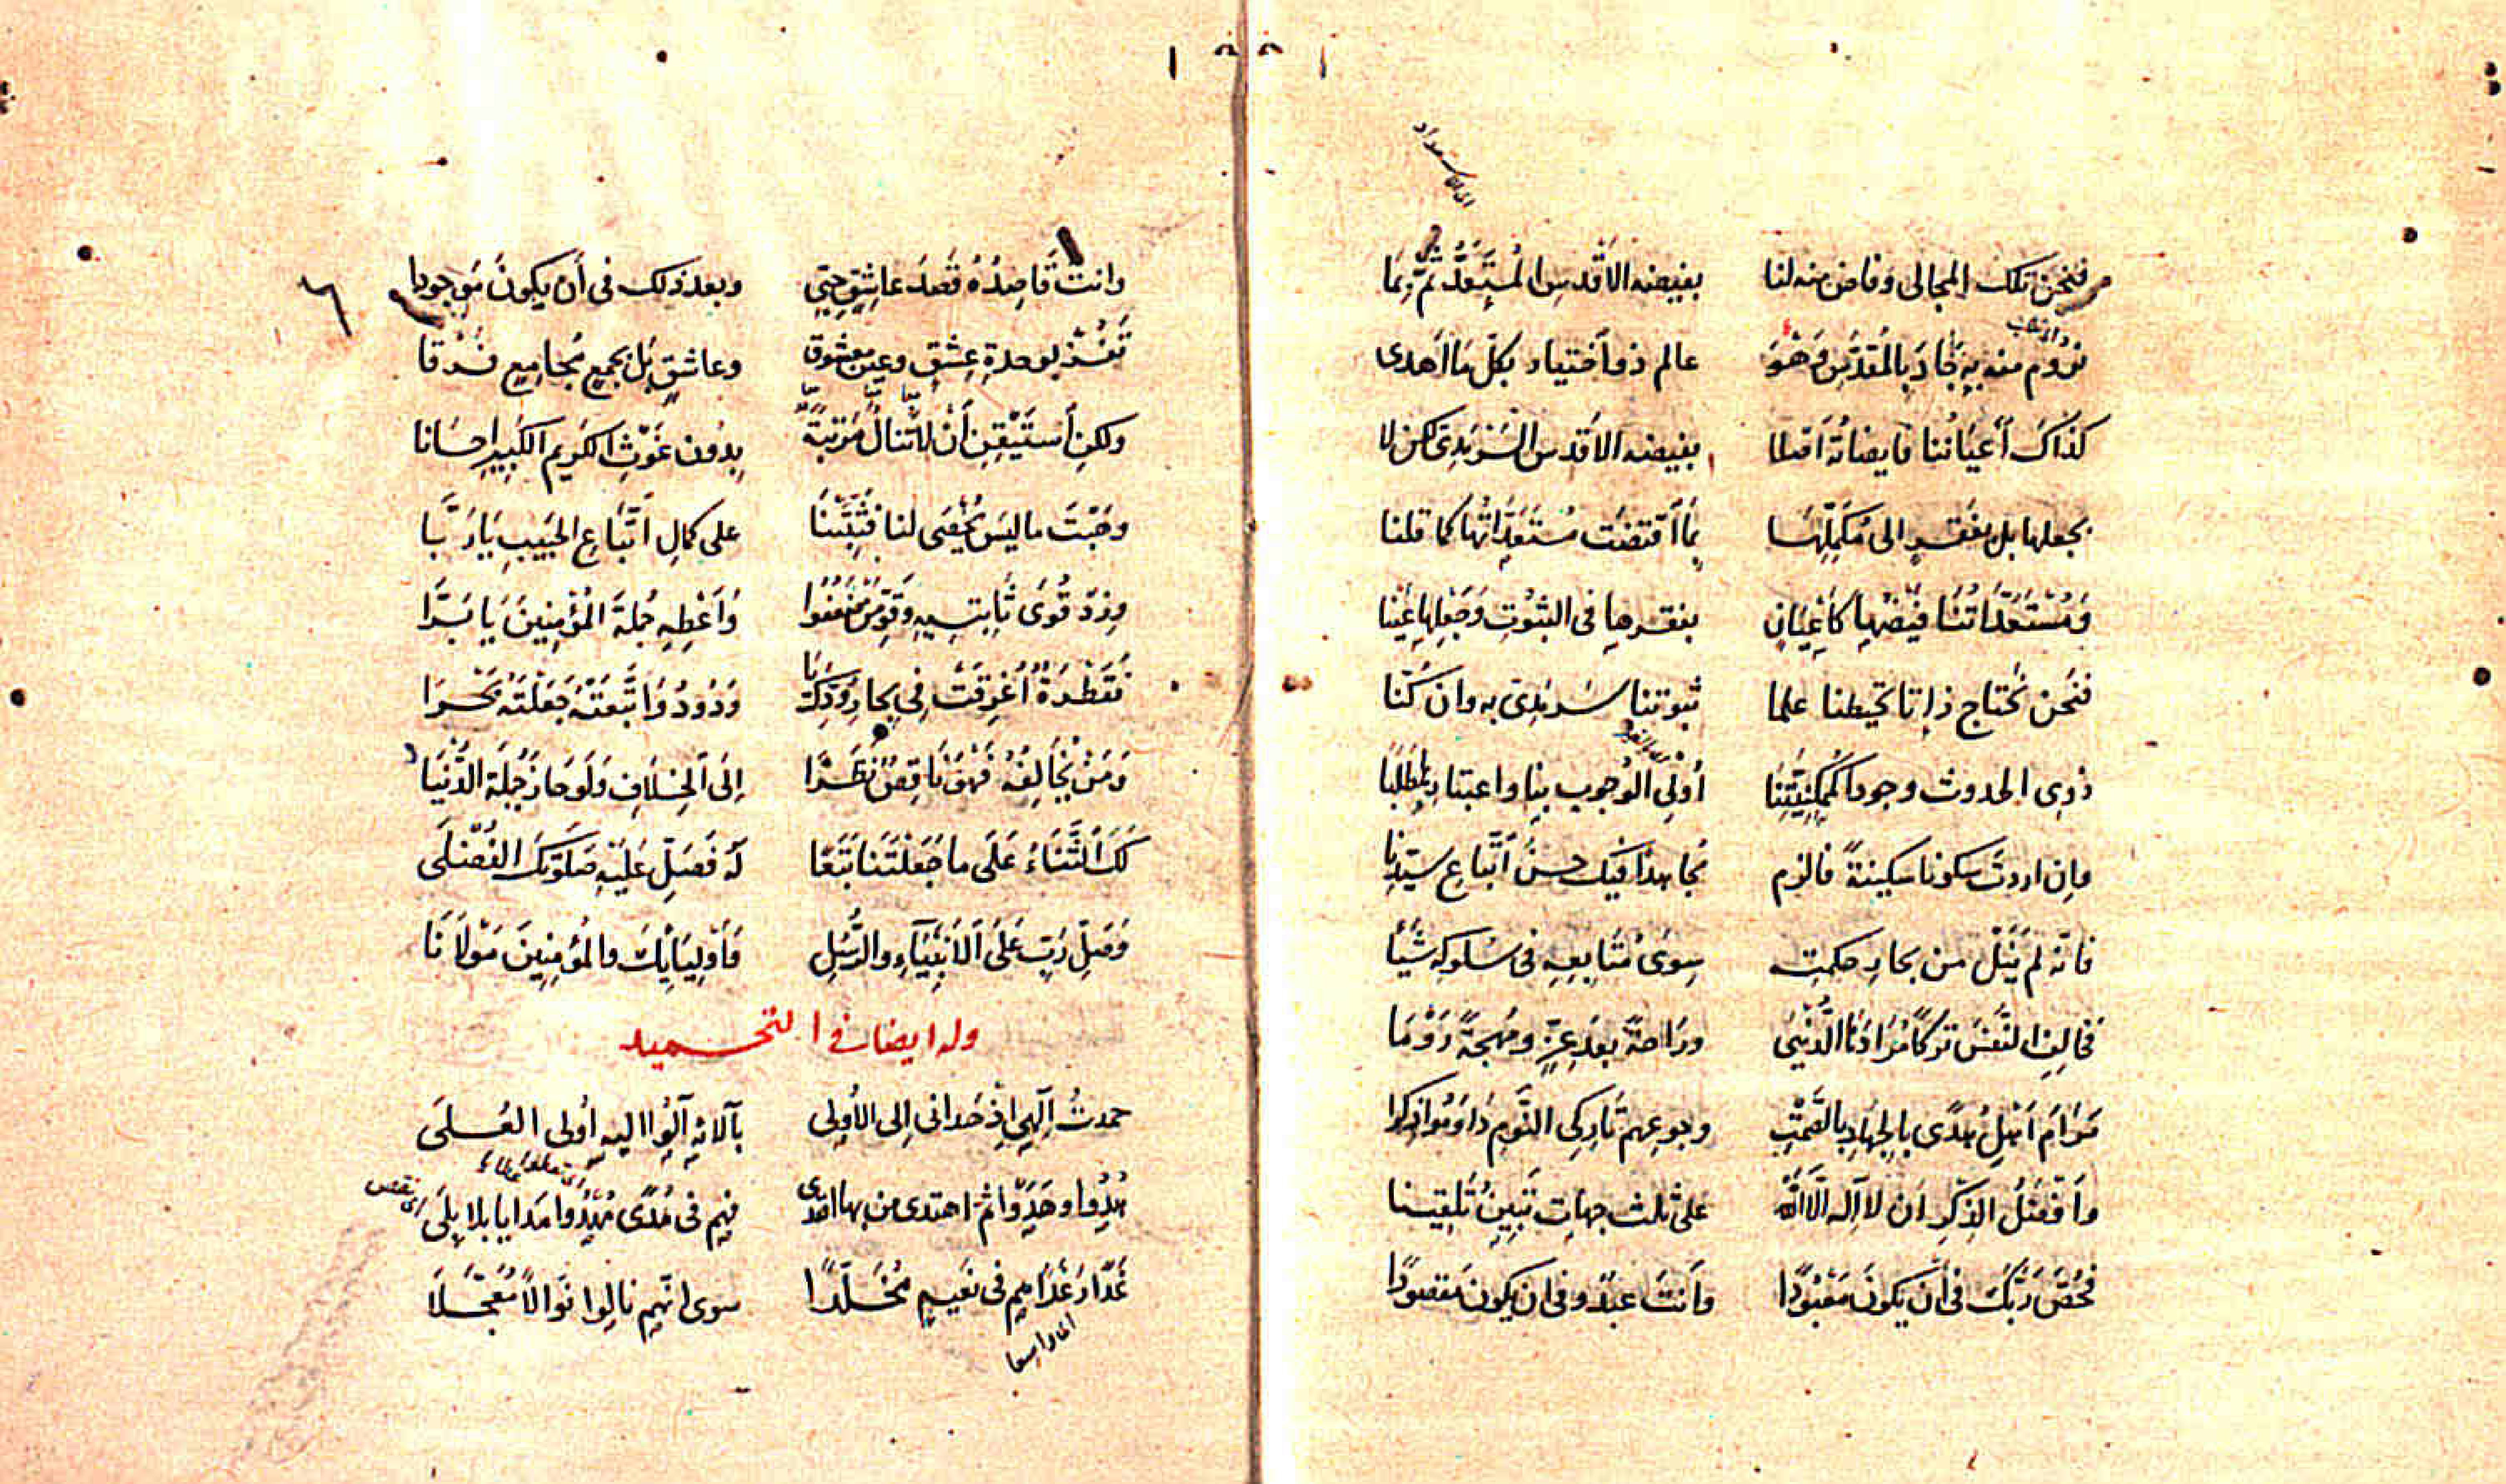 فنحن تلك المجالى وفاض منه لنا بفيضه الاقدس المستعد ثم بما
نروم منه به جاد بالمقدس وهو عالم ذو اختيار بكل ما اهدى
كذاك أعياننا فايضاته اصلا بفيضه الاقدس السرمدى لكن لا
بجعلها بل بفقر الى مكملها بما اقتضت مستعداتها كما قلنا
ومستعداتنا فيضها كاعيان بفقرها فى الثبوت وجعلها عينا
فنحن نحتاج ذاتا تحيطنا علما ثبوتنا سرمدى به وان كنا
ذوى الحدوث وجودا أولى الوجوب بنا واعتبار
وان اردت سكونا سكينة فالزم مجاهدا فيك حسن اتباع سيدنا
فانه لم ينل من بحار حكمته سوى متابعه فى سلوكه شيئا
فخالف النفس تركا مرادنا الدنيى وراحة بعد عز ومهجة روما
مرام اهل هدى بالجهاد بالصمت وجوعهم تاركى النوم داوموا ذكرا
وأفضل الذكر ان لا اله الا الله على ثلث جهات تبين تلقينا
فخص ربك فى أن يكون معبودا وأنت عبد وفى ان يكون مقصودا
٦
وانت قاصده قصد عاشق حتى وبعد ذلك فى أن يكون موجودا
تفز بوحدة عشق وعين معشوق وعاشق بل بجمع مجامع فرقا
ولكن أستيقن أن لا تنال مرتبة بدون غوث الكريم الكبير احسانا
وهبت ماليس يحصى لنا فثبتنا على كمال اتباع الحبيب يا ربا
وزد قوى ثابتيه وقو من ضعفوا وأعطه جملة المؤمنين يا برا
فقطرة أغرقت فى بحار ودك يا ودود واتبعته جعلته بحرا
ومن يخالفه فهو ناقص نظرا إلى الخلاف ولو حاز جملة الدنيا
لك الثناء على ما جعلتنا تبعا له فصل عليه صلوتك الفضلى
وصل رب على الانبياء والرسل واوليائك والمؤمنين مولانا
وله ايضا فى التحميد
حمدت الهى اذ هدانى الى الأولى بآلائه آلوا اليه أولى العلى
هدوا وهدوا ثم اهتدى من بها اهتدى فهم فى هدى مهدوا هدايا بلا بلى
غدا رغدا هم فى نعيم مخلدا سوى انهم نالوا نوالا معجلا
اى واسعا